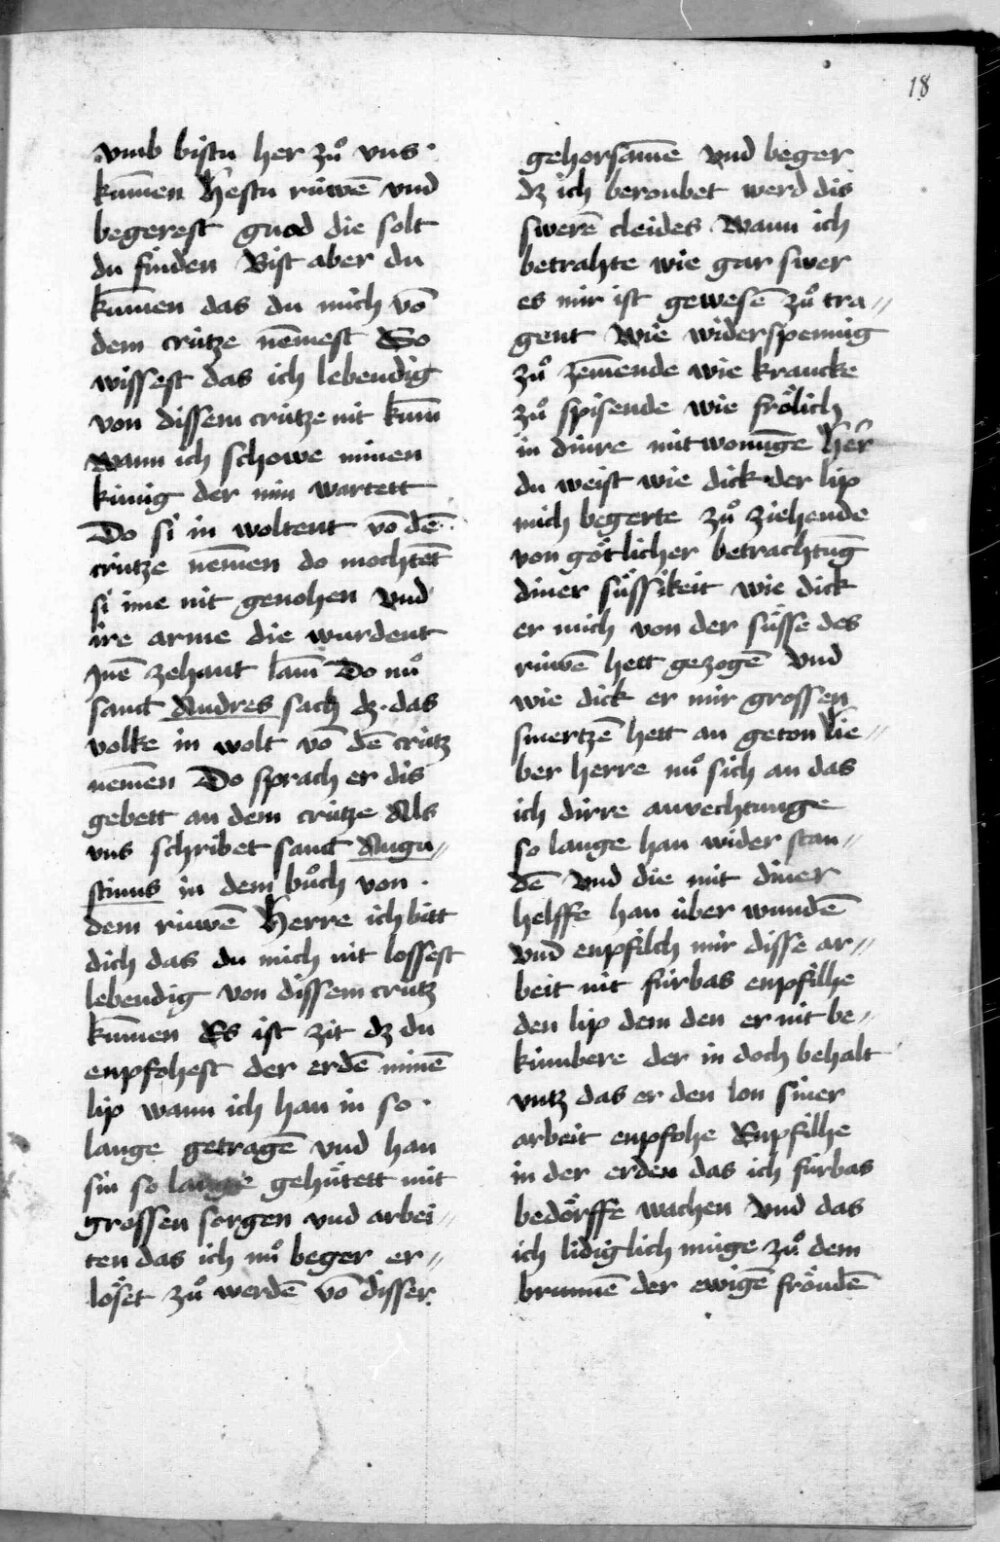 18
vmb bistu her zuͦ vns ·
kūmen Hestu rúwē vnd
begerest gnod die solt
du finden Bist aber du
kūmen das du mich vō
dem crútze nēmest So
wissest das ich lebendig
von dissem crútze nit kūm
wann ich schowe minen
kúnig der min wartett
Do si in woltent vō dē
crútze nēmen do mochtēt
si ime nit genohen vnd
ire arme die wurdent
Jnē zehant lam̄ Do nuͦ
sanct Andres sach dz · das
volke in wolt vō dē crútz
nemen Do sprach er dis
gebett an dem crútze Als
vns schribet sanct Augu〃
stinus in dem buͦch von ·
dem rúwē Herre ich bitt
dich das du mich nit lossest
lebendig von dissem crútz
kūmen Es ist zit dz du
enpfohest der erdē minē
lip wann ich han in so ·
lange getragē vnd han
sin so lange gehútett mit
grossen sorgen vnd arbei〃
ten das ich nuͦ beger er〃
lo͛set zuͦ werdē vō disser
gehorsamē vnd beger
dz ich beroubet werd dis
swerē cleides wann ich
betrahte wie gar swer
es mir ist gewesē zuͦ tra〃
gent wie widerspennig
zuͦ zēmende wie krancke
zuͦ spisende wie fro͛lich
in dinre mitwonūge h̄er
du weist wie dick der lip
mich begerte zuͦ ziehende
von go͛tlicher betrachtūg
diner sússikeit wie dick
er mich von der sússe des
rúwē hett gezogē vnd
wie dick er mir grossen
smertzē hett an geton lie〃
ber herre nuͦ sich an das
ich dirre anvechtunge
so lange han wider stan〃
dē vnd die mit diner
helffe han úber wundē
vnd enpfilch mir disse ar〃
beit nit fúrbas enpfilhe
den lip dem den er nit be〃
kúmbere der in doch behalt
vntz das er den lon siner
arbeit enpfohe Enpfilhe
in der erden das ich fúrbas
bedo͛rffe wachen vnd das
ich lidiglich múge zuͦ dem
brunnē der ewigē fro͛udē